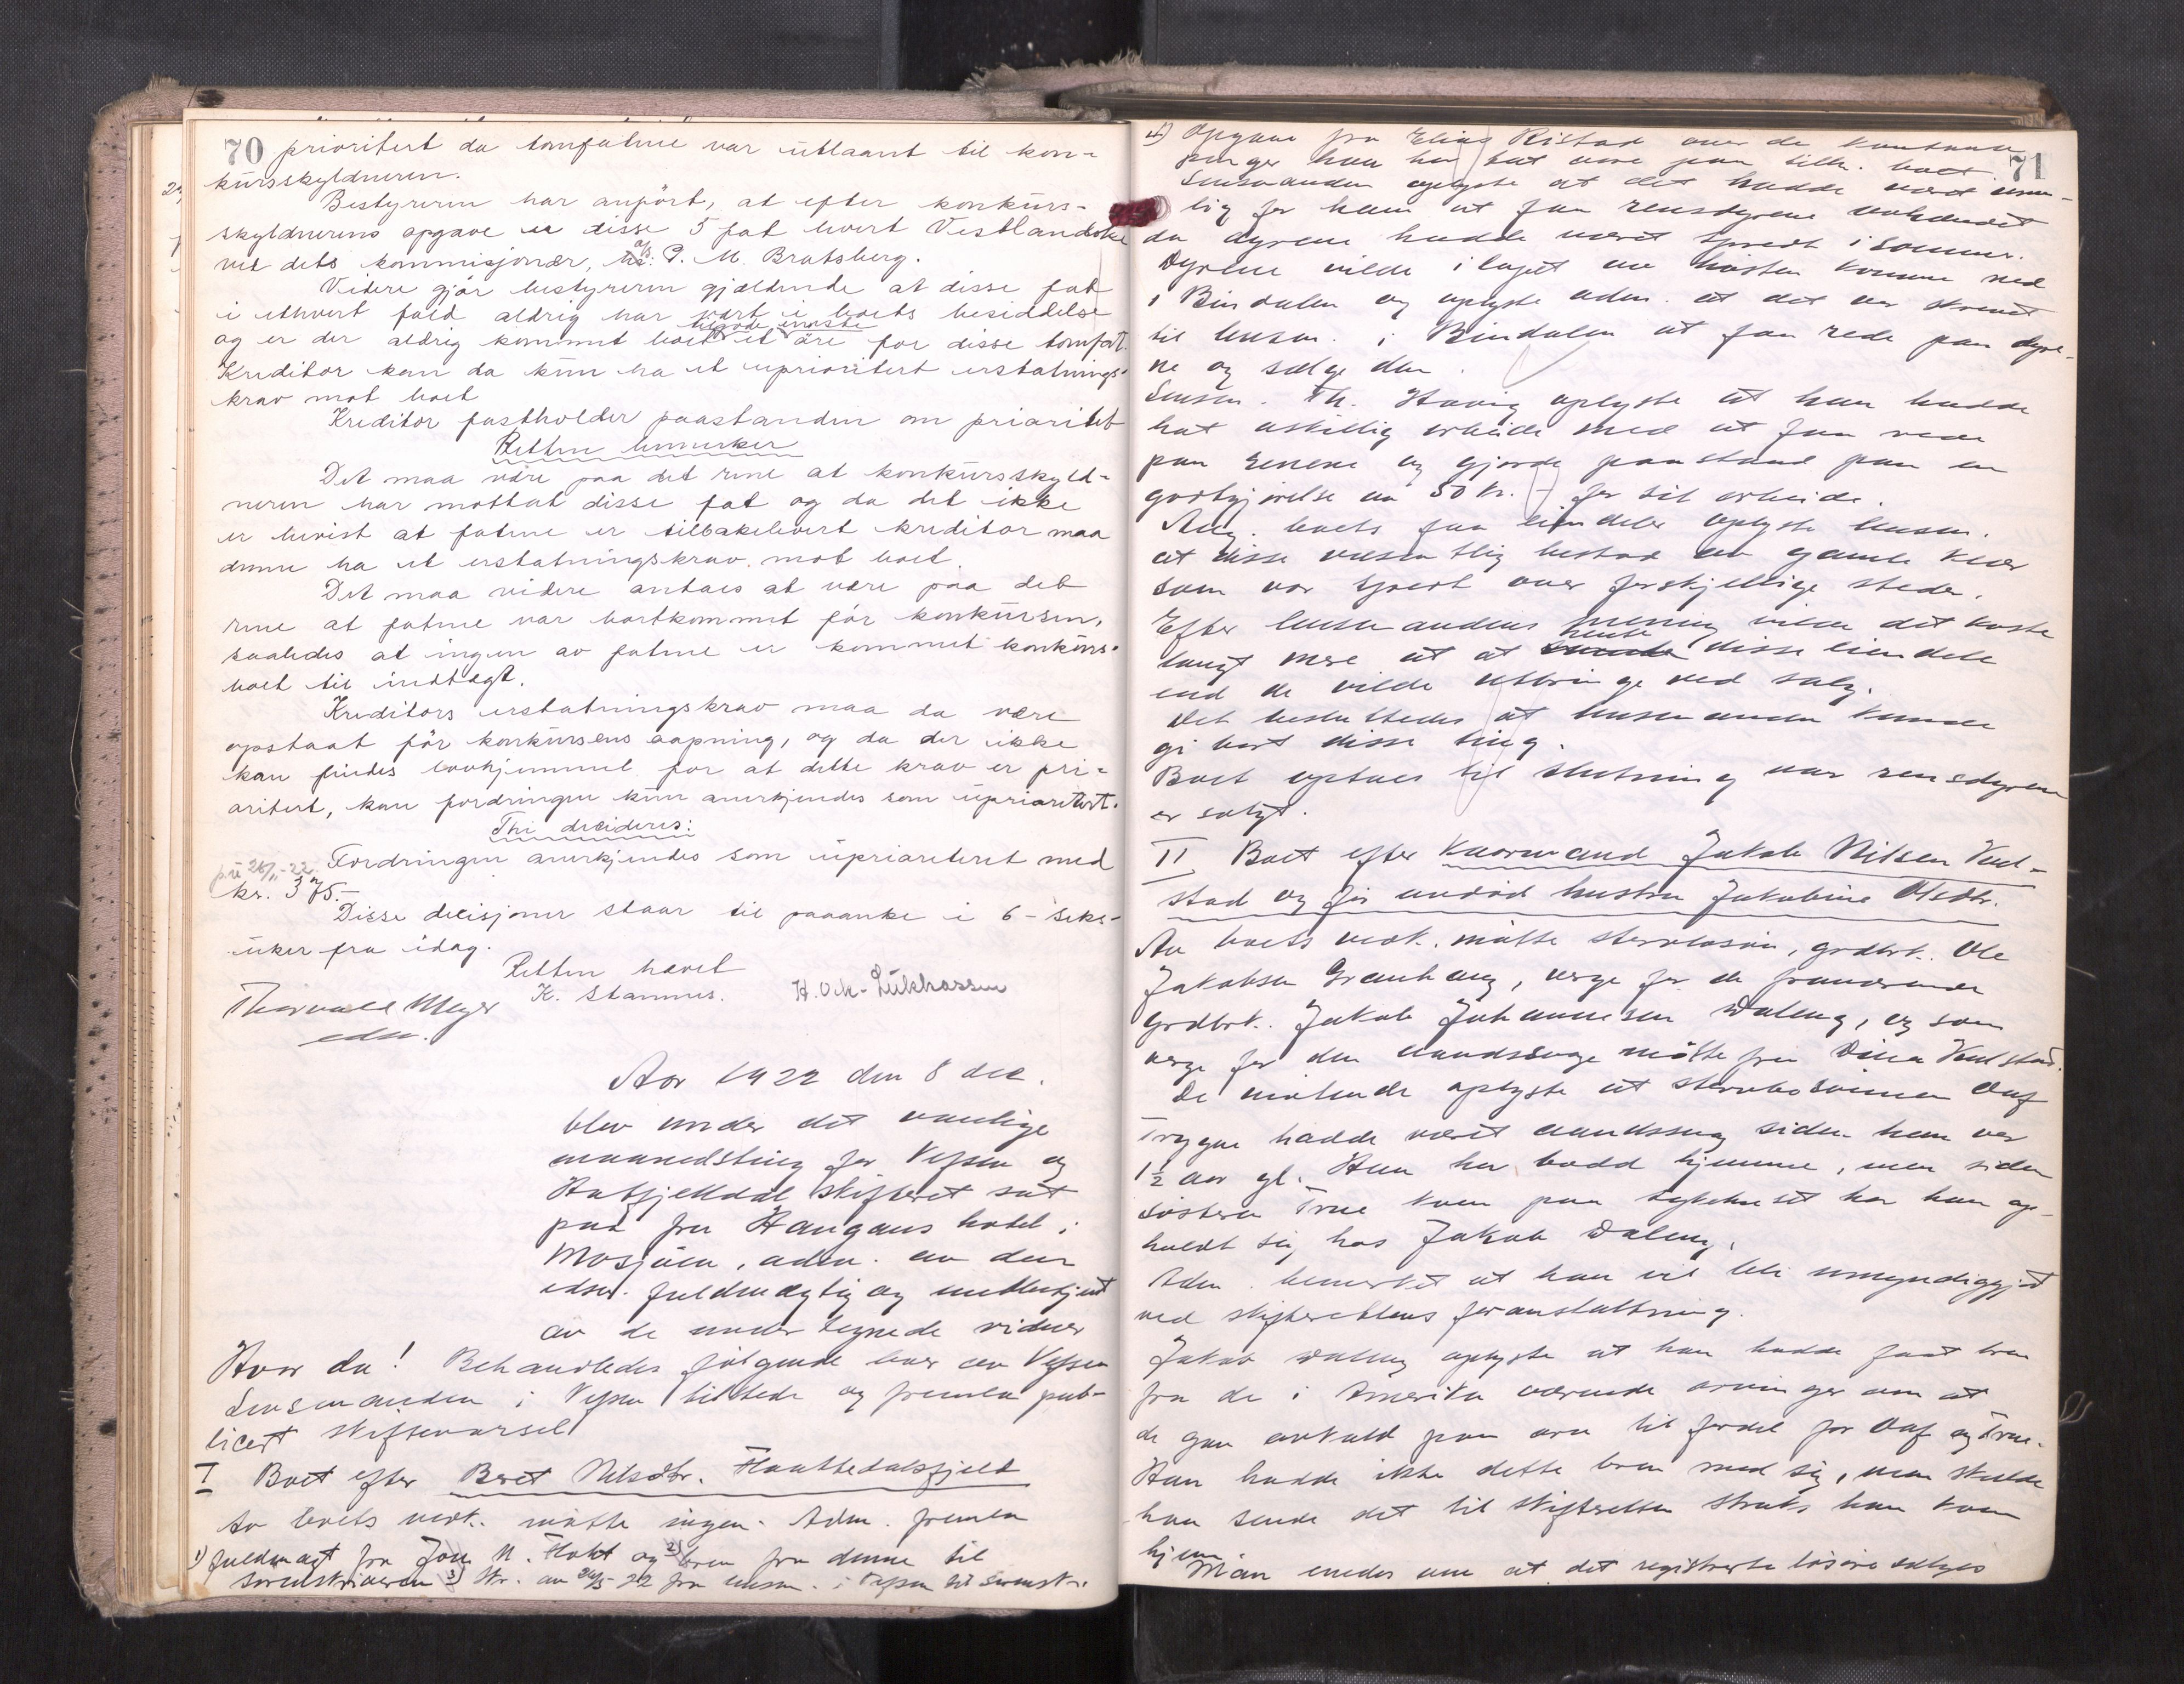 70 prioritert da tomfatene var utlaant til kon-
kursskyldneren.
Bestyreren har anført, at efter konkurs-
skyldnerens opgave er disse 5 fat levert Vestlandske
ved dets kommisjonær, P. M. Bratsberg.
Videre gjør bestyreren gjældende at disse fat
i ethvert fald aldrig har vært i boets besiddelse
og er der aldrig kommet boet tilgode eneste øre for disse tomfat.
Kreditor kan da kun ha et uprioritert erstatnings-
krav mot boet
Kreditor fastholder paastanden om prioritet
Retten bemerker
Det maa være paa det rene at konkursskyld-
neren har mottat disse fat og da det ikke
er bevist at fatene er tilbakelevert kreditor maa
denne ha et erstatningskrav mot boet.
Det maa videre antaes at være paa det
rene at fatene var bortkommet før konkursen,
saaledes at ingen av fatene er kommet konkurs-
boet til indtægt.
Kreditors erstatningskrav maa da være
opstaat før konkursens aapning, og da der ikke
kan findes lovhjemmel for at dette krav er pri-
oritert, kan fordringen kun anerkjendes som uprioritert.
Thi decideres:
Fordringen anerkjendes som uprioriteret med
kr. 375.-
Disse decisjoner staar til paaanke i 6 - seks -
uker fra idag.
Retten hævet
Thorvald Meyer K. Stamnes. H. Och-Lükhassen
edsv.
Aar 1922 den 8 dec.
blev under det vanlige
maanedsting for Vefsen og
Hatfjelldal skifteret sat
paa fru Haugans hotel i
Mosjøen, adm. av den
edsv. fuldmægtig og meddelt
av de undertegnede vidner
Hvor da! Behandledes følgende boer av Vefsen
Lensmanden i Vefsen tilstede og fremla pub-
licert skiftevarsel
I Boet efter Beret Nilsdtr. Haattedalsfjeld
Av boets vedk. møtte ingen. Adm. fremla
1) fuldmagt fra Jon N. og 2) brev fra denne til
sorenskriveren 3) Skr. av 24/5-22 fra lensm. i Vefsen til sorenskr.
71
4) Opgave fra Elias Ristad over de kontante
penger han har hat paa tilh. boet
Lensmanden oplyste at det hadde været umu-
lig for ham at faa rensdyrene avhændet
da dyrene hadde været spredt i sommer.
Dyrene vilde i løpet av høsten komme ned
i Bindalen og oplyste adm. at det var skrevet
til lensm. i Bindalen at faa rede paa dyre-
ne og sælge dem.
Lensm. Th. Havig oplyste at han hadde
hat adskillig arbeide med at faa rede
paa renene og gjorde paastand paa en
godtgjørelse av 50 kr. for sit arbeide.
Ang. boets faa eiendeler oplyste lensm.
at disse væsentlig bestod av gamle klær
som var spredt over forskjellige steder.
Efter lensmandens mening vilde det koste
langt mere at at hente disse eiendele
end de vilde utbringe ved salg.
Det besluttedes at lensmanden kunde
gi bort disse ting.
Boet optaes til slutning naar rensdyrene
er solgt.
II Boet efter kaarmand Jakob Nilsen Ved-
stad og før avdød hustru Jakobine Olsdtr.
Av boets vedk. møtte stervbosøn, grdbrk. Ole
Jakobsen Granhaug, verge for de fraværende
grdbrk. Jakob Johannesen Daleng, og som
verge for den aandssvage møtte fru Dina Vedstad.
De møtende oplyste at stervbosønnen Oluf
Trygve hadde været aandssvag siden han var
1½ aar gl. Han har bodd hjemme, men siden
søsteren Trine kom paa sykehuset har han op-
holdt sig hos Jakob Daleng.
Adm. bemerket at han vil bli umyndiggjort
ved skifterettens foranstaltning.
Jakob Daleng oplyste at han hadde faat brev
fra de i Amerika værende arvinger om at
de gav avkald paa arv til fordel for Oluf og Trine.
Han hadde ikke dette brev med sig, men skulde
han sende det til skifteretten straks han kom
hjem
Man enedes om at det registrerte løsøre sælges